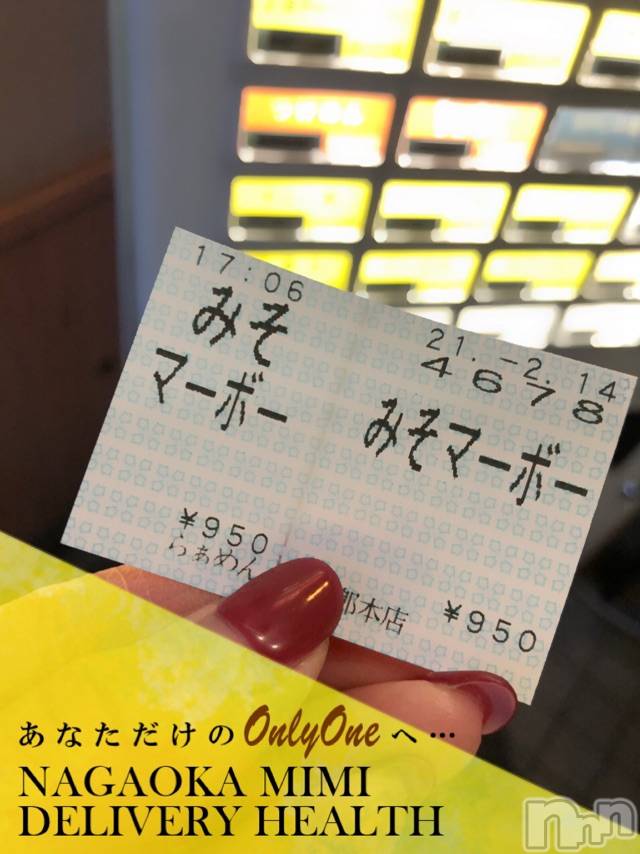 つけめん
17:06
みそ
マーボー
¥950
らぁめん
21.-2.14
4678
みそマーボー
郎本店
¥950
あなただけのOnlyOneへ…
NAGAOKA MIMI
DELIVERY HEALTH
nnn